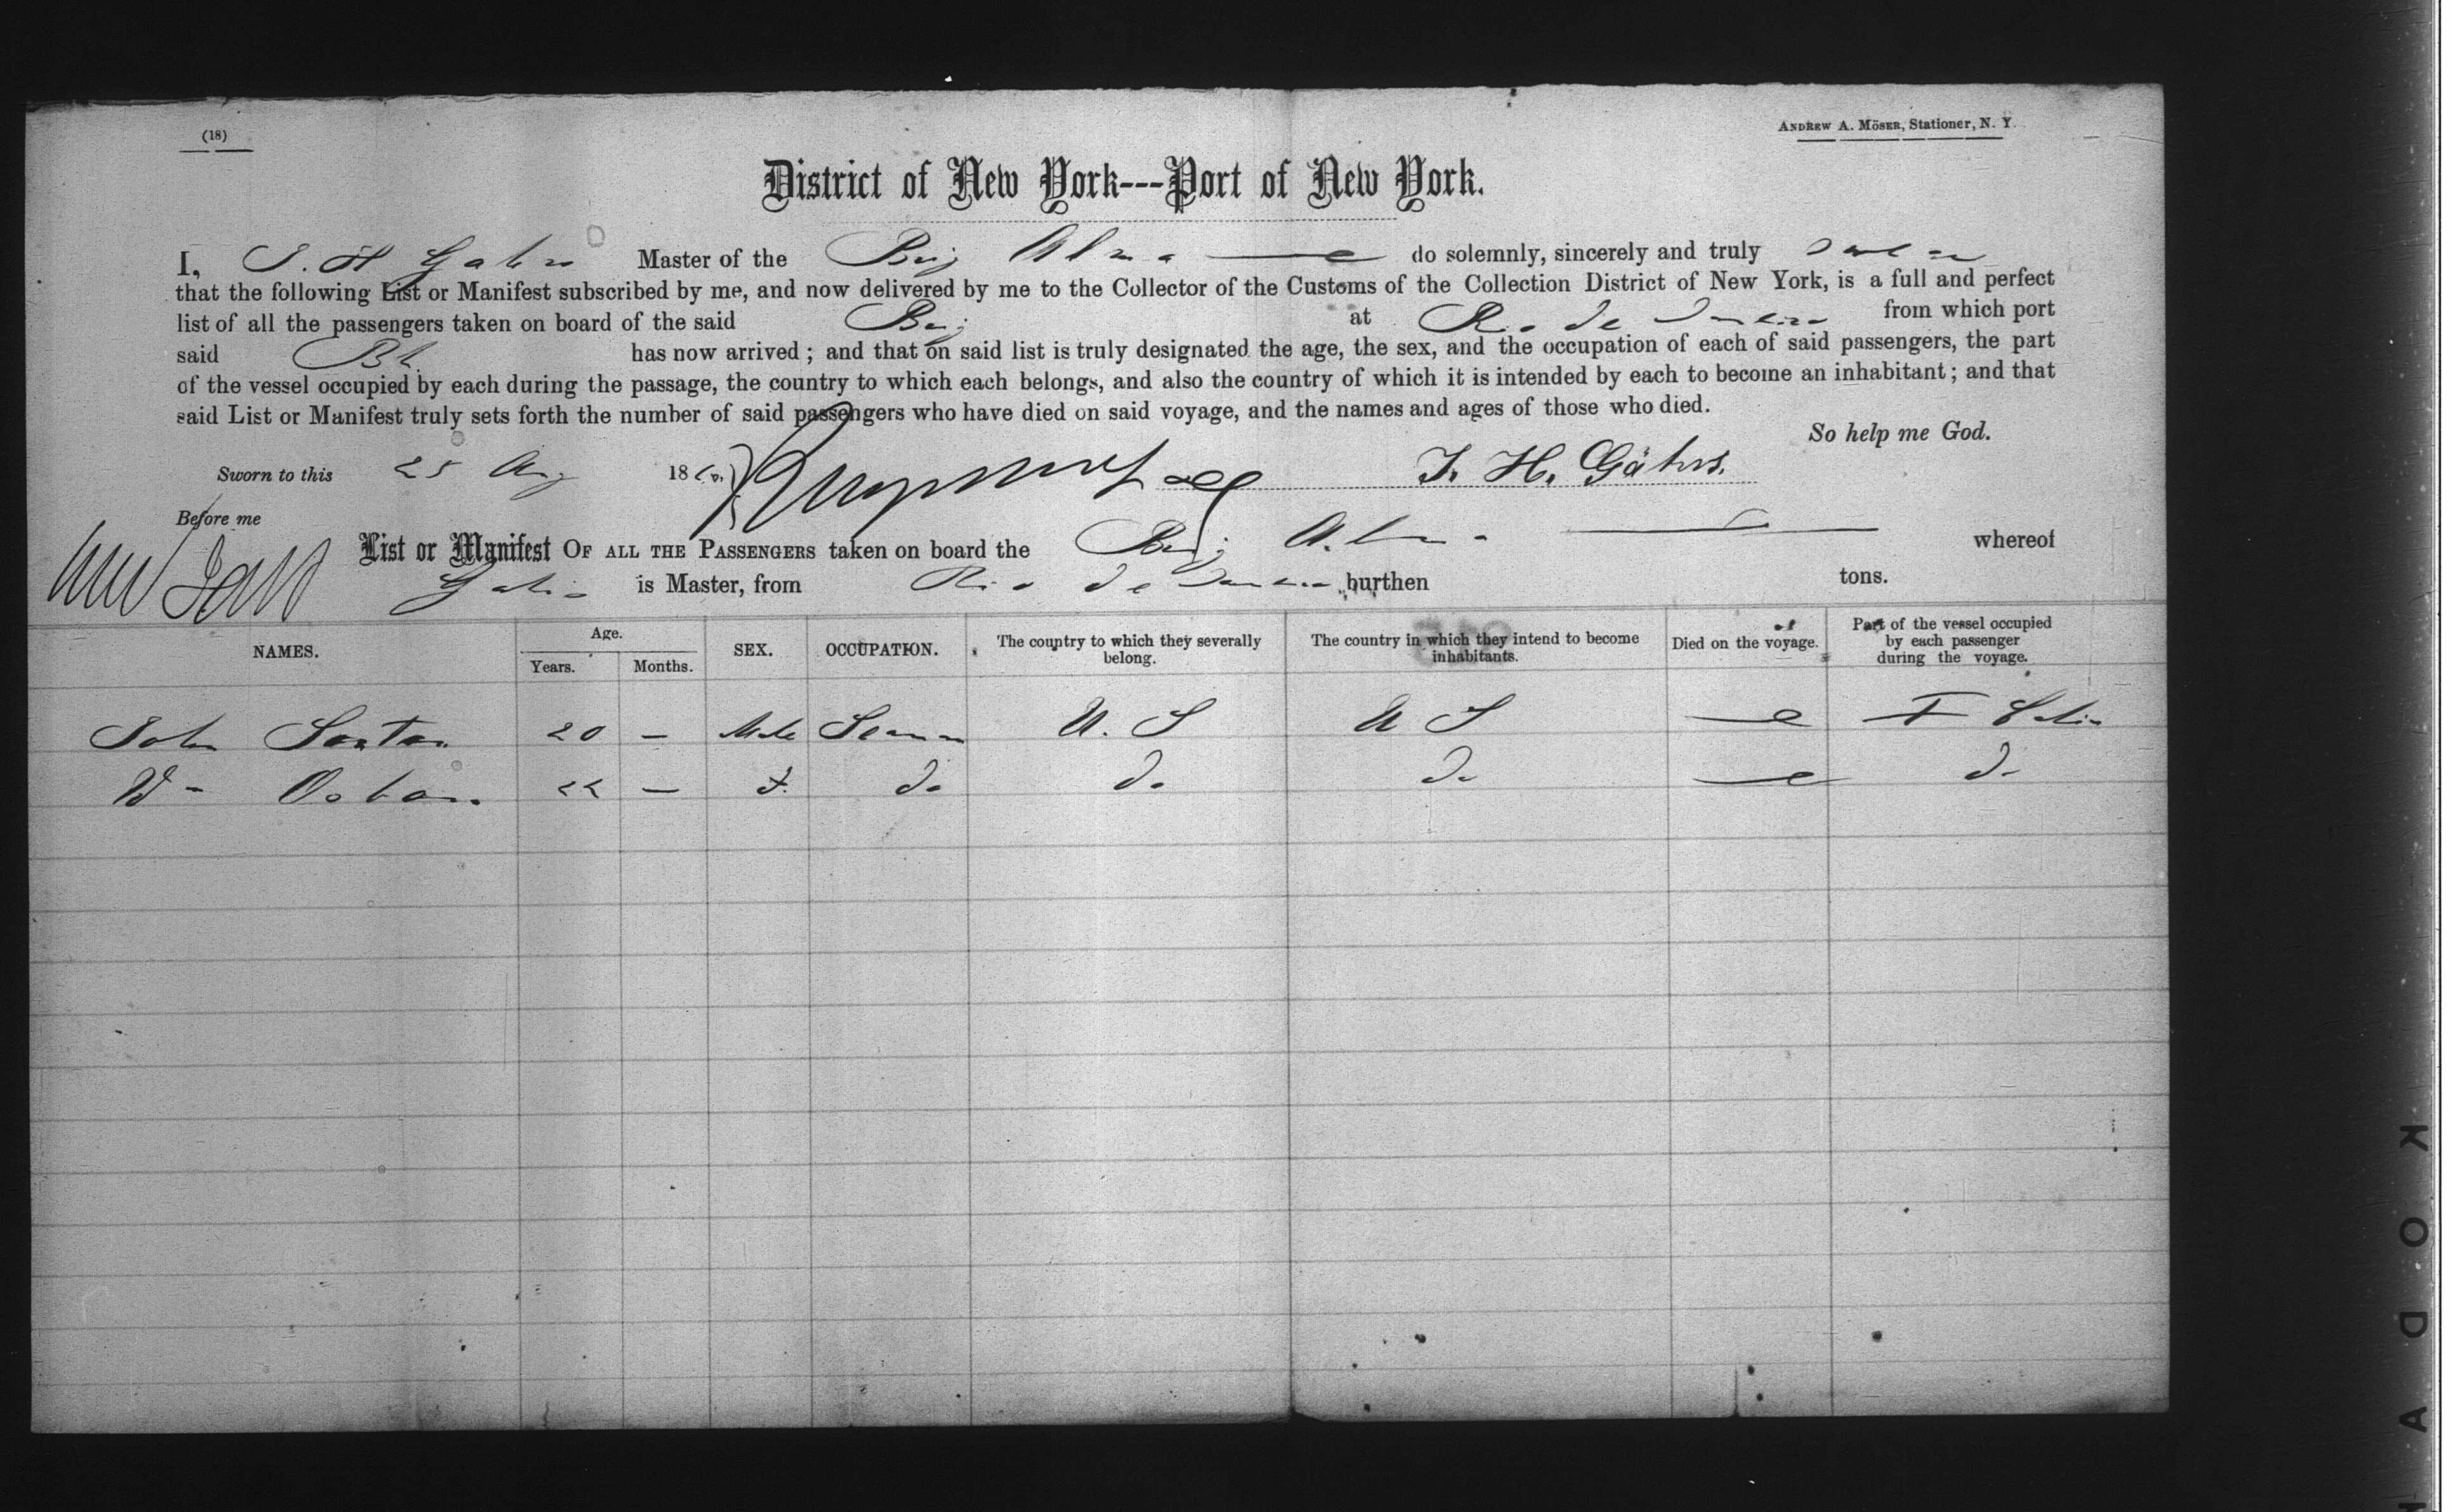 (18)
ANDREW A. MÖSER, Stationer, N. Y.
District of New York---Port of New York.
I, J. H Gahrs Master of the Brig Alma do solemnly, sincerely and truly swear
that the following List or Manifest subscribed by me, and now delivered by me to the Collector of the Customs of the Collection District of New York, is a full and perfect
list of all the passengers taken on board of the said Brig at Rio de Janeiro from which port
said has now arrived; and that on said list is truly designated the age, the sex, and the occupation of each of said passengers, the part
of the vessel occupied by each during the passage, the country to which each belongs, and also the country of which it is intended by each to become an inhabitant; and that
said List or Manifest truly sets forth the number of said passengers who have died on said voyage, and the names and ages of those who died.
So help me God.
Sworn to this 25 Aug 18 J. H. Gährs.
Before me
List or Manifest OF ALL THE PASSENGERS taken on board the Brig Alma whereof
Gahrs is Master, from Rio de Janeiro burthen tons.
NAMES. Age. Years. Months. SEX. OCCUPATION. The country to which they severally belong. The country in which they intend to become inhabitants. Died on the voyage. Part of the vessel occupied by each passenger during the voyage.
John 20 — Male Seaman U. S U S —
Wm 22 — do do do —  do
KODA